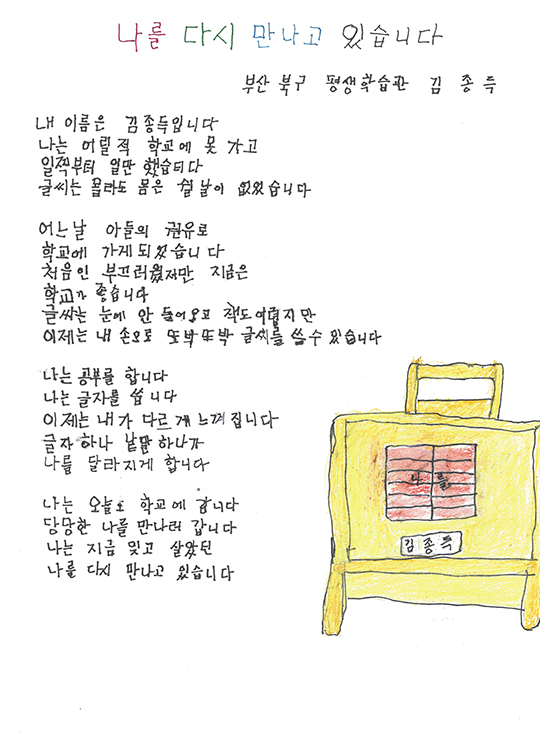 나를 다시 만나고 있습니다
부산 북구 평생학습관 김 종 득
내 이름은 김종득입니다
나는 어릴 적 학교에 못 가고
일찍부터 일만 했습니다
글씨는 몰라도 몸은 쉴 날이 없었습니다
어느날 아들의 권유로
학교에 가게 되었습니다
처음인 부끄러웠지만 지금은
학교가 좋습니다
글씨는 눈에 안 들어오고 책도 어렵지만
이제는 내 손으로 또박또박 글씨를 쓸수 있습니다
나는 공부를 합니다
나는 글자를 씁니다
이제는 내가 다르게 느껴집니다
글자 하나 낱말 하나가
나를 달라지게 합니다
나는 오늘도 학교에 갑니다
당당한 나를 만나러 갑니다
나는 지금 잊고 살았던
나를 다시 만나고 있습니다
나를
김종득